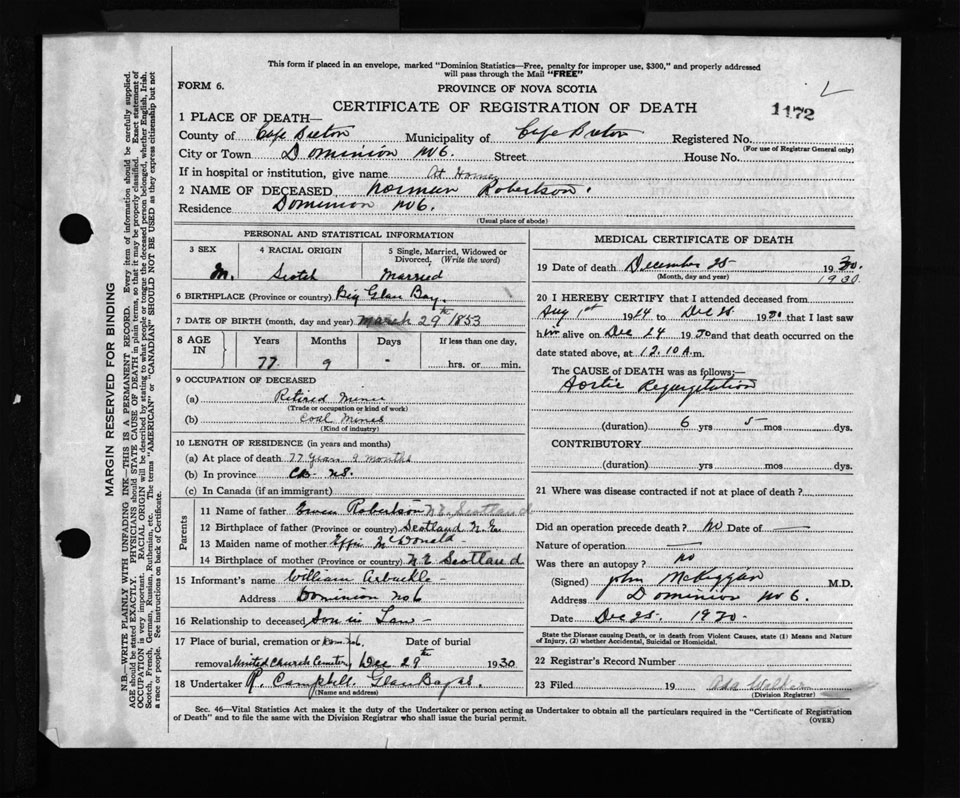 This form if placed in an envelope, marked "Dominion Statistics—Free, penalty for improper use, $300," and properly addressed
will pass through the Mail "FREE"
FORM 6.
PROVINCE OF NOVA SCOTIA
CERTIFICATE OF REGISTRATION OF DEATH
1172
1 PLACE OF DEATH—
County of Cape Breton Municipality of Cape Breton Registered No.
(For use of Registrar General only)
City or Town Dominion No 6. Street House No.
If in hospital or institution, give name At Home
2 NAME OF DECEASED Norman Robertson.
Residence Dominion No 6.
(Usual place of abode)
PERSONAL AND STATISTICAL INFORMATION
3 SEX 4 RACIAL ORIGIN 5 Single, Married, Widowed or Divorced, (Write the word)
M. Scotch Married
6 BIRTHPLACE (Province or country) Big Glace Bay.
7 DATE OF BIRTH (month, day and year) March 29th 1853
8 AGE IN Years Months Days If less than one day,
77 9 - hrs. or min.
9 OCCUPATION OF DECEASED
(a) Retired Miner
(Trade or occupation or kind of work)
(b) Coal Mines
(Kind of industry)
10 LENGTH OF RESIDENCE (in years and months)
(a) At place of death 77 Years 9 months
(b) In province CB NS.
(c) In Canada (if an immigrant)
Parents
11 Name of father Ewen Robertson N.E. Scotland
12 Birthplace of father (Province or country) Scotland N.E.
13 Maiden name of mother Effie McDonald
14 Birthplace of mother (Province or country) N E Scotland
15 Informant's name William Arbuckle
Address Dominion No 6
16 Relationship to deceased Son in Law
17 Place of burial, cremation or Dom No 6, Date of burial
removal United Church Cemetery Dec 29th 1930
18 Undertaker R. Campbell. Glace Bay
(Name and address)
MEDICAL CERTIFICATE OF DEATH
19 Date of death December 25 1930.
(Month, day and year) 1930
20 I HEREBY CERTIFY that I attended deceased from
Aug 1st 1924 to Dec 25 1930 that I last saw
him alive on Dec 24 1930 and that death occurred on the
date stated above, at 12.10 A.m.
The CAUSE of DEATH was as follows;—
Aortic Regurgetation
(duration) 6 yrs 5 mos dys.
CONTRIBUTORY
(duration) yrs. mos. dys.
21 Where was disease contracted if not at place of death?
Did an operation precede death? No Date of
Nature of operation
Was there an autopsy? no
(Signed) John McKiggan M.D.
Address Dominion No 6.
Date Dec 25. 1930.
State the Disease causing Death, or in death from Violent Causes, state (1) Means and Nature
of Injury, (2) whether Accidental, Suicidal or Homicidal.
22 Registrar's Record Number
23 Filed 19 Ada Walker
(Division Registrar)
Sec. 46—Vital Statistics Act makes it the duty of the Undertaker or person acting as Undertaker to obtain all the particulars required in the "Certificate of Registration
of Death" and to file the same with the Division Registrar who shall issue the burial permit.
(OVER)
MARGIN RESERVED FOR BINDING
N.B.—WRITE PLAINLY WITH UNFADING INK—THIS IS A PERMANENT RECORD. Every item of information should be carefully supplied.
AGE should be stated EXACTLY. PHYSICIANS should STATE CAUSE OF DEATH in plain terms, so that it may be properly classified. Exact statement of
OCCUPATION is very important. RACIAL ORIGIN will be described by stating to what people or tongue the deceased person belonged, whether English, Irish,
Scotch, French, German, Russian, Ruthenian, etc. The terms "AMERICAN" or "CANADIAN" SHOULD NOT BE USED as they express citizenship but not
a race or people. See instructions on back of Certificate.